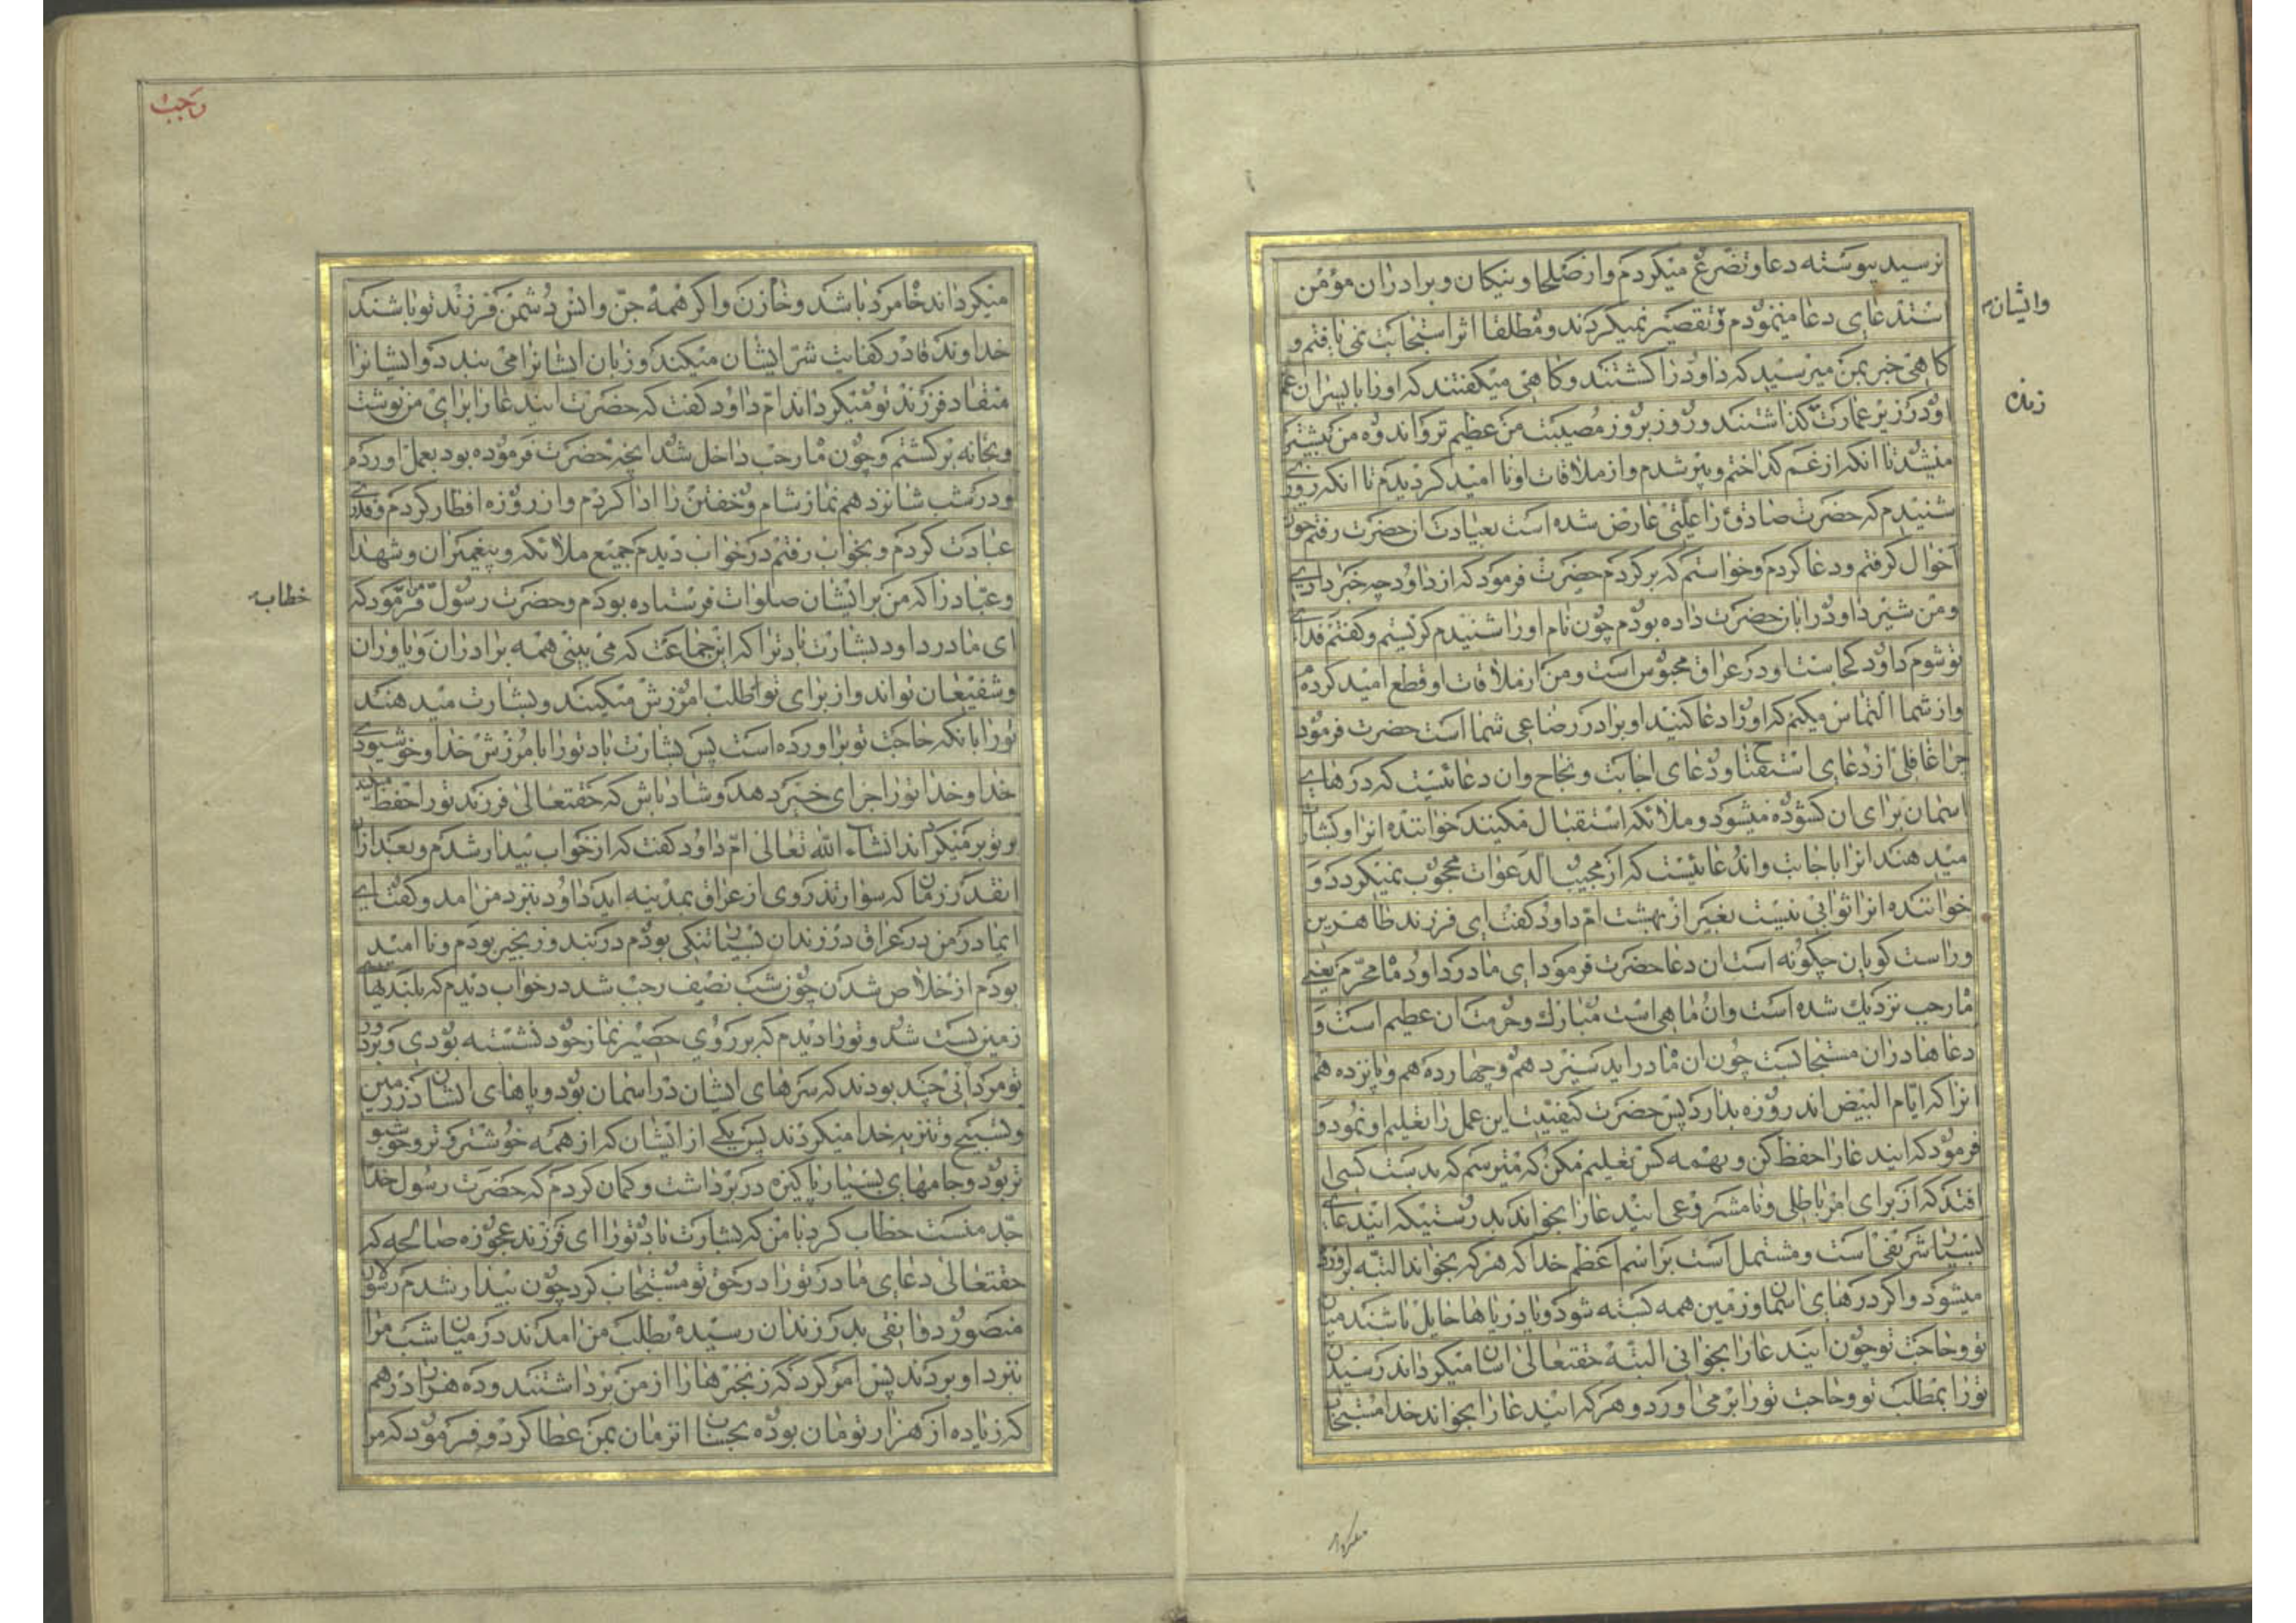 نرسید پیوسته دعا و تضرع میکردم و از صلحا و نیکان و برادران مؤمن
استدعای دعا مینمودم و تقصیر نمیکردند و مطلقا اثر استجابت نمی یافتم و
کاهی خبر بمن میرسید که داود را کشتند و کاهی میکفتند که او را با پسران عم
او در زیر عمارت کذاشتند و روز بروز مصیبت من عظیم تر و اندوه من بیشتر
میشد تا انکه از غم کداختم و پیر شدم و از ملاقات او نا امید کردیدم تا انکه روزی
شنیدم که حضرت صادق را علتی عارض شده است بعیادت ان حضرت رفتم چون
احوال کرفتم و دعا کردم و خواستم که بر کردم حضرت فرمود که از داود چه خبر داری
و من شیر داود را بان حضرت داده بودم چون نام او را شنیدم کریستم و کفتم فدای
تو شوم داود کجاست او در عراق محبوس است و من از ملاقات او قطع امید کرده ام
و از شما التماس میکنم که او را دعا کنید او برادر رضاعی شما است حضرت فرمود
چرا غافلی از دعای استفتاح و دعای اجابت و نجاح و ان دعائیست که درهای
اسمان برای ان کشوده میشود و ملائکه استقبال میکنند خواننده انرا و بشارت
میدهند انرا باجابت و اندعائیست که از مجیب الدعوات محجوب نمیکردد و
خواننده انرا ثوابی نیست بغیر از بهشت ام داود کفت ای فرزند طاهرین
و راست کویان چکونه است ان دعا حضرت فرمود ای مادر داود ماه محرم یعنی
ماه رجب نزدیك شده است و ان ماهی است مبارك و حرمت ان عظیم است و
دعاها در ان مستجابست چون ان ماه در اید سیزدهم و چهاردهم و پانزدهم
انرا که ایام البیض اند روزه بدار پس حضرت کیفیت این عمل را تعلیم او نمود و
فرمود که ایندعا را حفظ کن و بهمه کس تعلیم مکن که میترسم که بدست کسی
افتد که از برای امر باطلی و نامشروعی ایندعا را بخواند بدرستیکه ایندعای
بسیار شریفی است و مشتمل است بر اسم اعظم خدا که هر که بخواند البته براورده
میشود و اکر درهای اسمان و زمین همه بسته شود و یا دریاها حایل باشند میان
تو و حاجت تو چون ایندعا را بخوانی البته حقتعالی اسان میکرداند رسیدن
تو را بمطلب تو و حاجت تو را بر می اورد و هر که ایندعا را بخواند خدا مستجاب
وایشان
زمان
واجب
میکرداند خواه مرد باشد و خواه زن و اکر همه جن و انس دشمن فرزند تو باشند
خداوند قادر کفایت شر ایشان میکند و زبان ایشانرا می بندد و ایشانرا
منقاد فرزند تو میکرداند ام داود کفت که حضرت ایندعا را برای من نوشت
و بخانه برکشتم و چون ماه رجب داخل شد انچه حضرت فرموده بود بعمل اوردم
و در شب شانزدهم نماز شام و خفتن را ادا کردم و از روزه افطار کردم و قدری
عبادت کردم و بخواب رفتم در خواب دیدم جمیع ملائکه و پیغمبران و شهدا
و عباد را که من بر ایشان صلوات فرستاده بودم و حضرت رسول فرمود که
ای مادر داود بشارت باد ترا که این جماعت که می بینی همه برادران و یاوران
و شفیعان تواند و از برای تو طلب امرزش میکنند و بشارت میدهند
تورا بانکه حاجت تو براورده است پس بشارت باد تورا بامرزش خدا و خوشنودی
خدا و خدا تورا جزای خیر دهد و شاد باش که حقتعالی فرزند تورا حفظ میکند
و بتو بر میکرداند انشاء الله تعالی ام داود کفت که از خواب بیدار شدم و بعد از ان
انقدر زمان که سوار تندروی از عراق بمدینه اید داود بنزد من امد و کفت ای
ایمادر من در عراق در زندان بسیار تنکی بودم در بند و زنجیر بودم و نا امید
بودم از خلاص شدن چون شب نصف رجب شد در خواب دیدم که بلندیهای
زمین پست شد و تورا دیدم که بر روی حصیر نماز خود نشسته بودی و بر دور
تو مردانی چند بودند که سرهای ایشان در اسمان بود و پاهای ایشان در زمین
و تسبیح و تنزیه خدا میکردند پس یکی از ایشان که از همه خوشتر و خوشبو
تر بود و جامهای بسیار پاکیزه در بر داشت و کمان کردم که حضرت رسول خدا
جد منست خطاب کرد با من که بشارت باد تورا ای فرزند عجوزه صالحه که
حقتعالی دعای مادر تورا در حق تو مستجاب کرد چون بیدار شدم رسولان
منصور دوانقی بدر زندان رسیده بطلب من امدند در میان شب مرا
بنزد او بردند پس امر کرد که زنجیرها را از من برداشتند و ده هزار درهم
که زیاده از هزار تومان بوده بحساب انزمان بمن عطا کرد و فرمود که مرا
خطاب